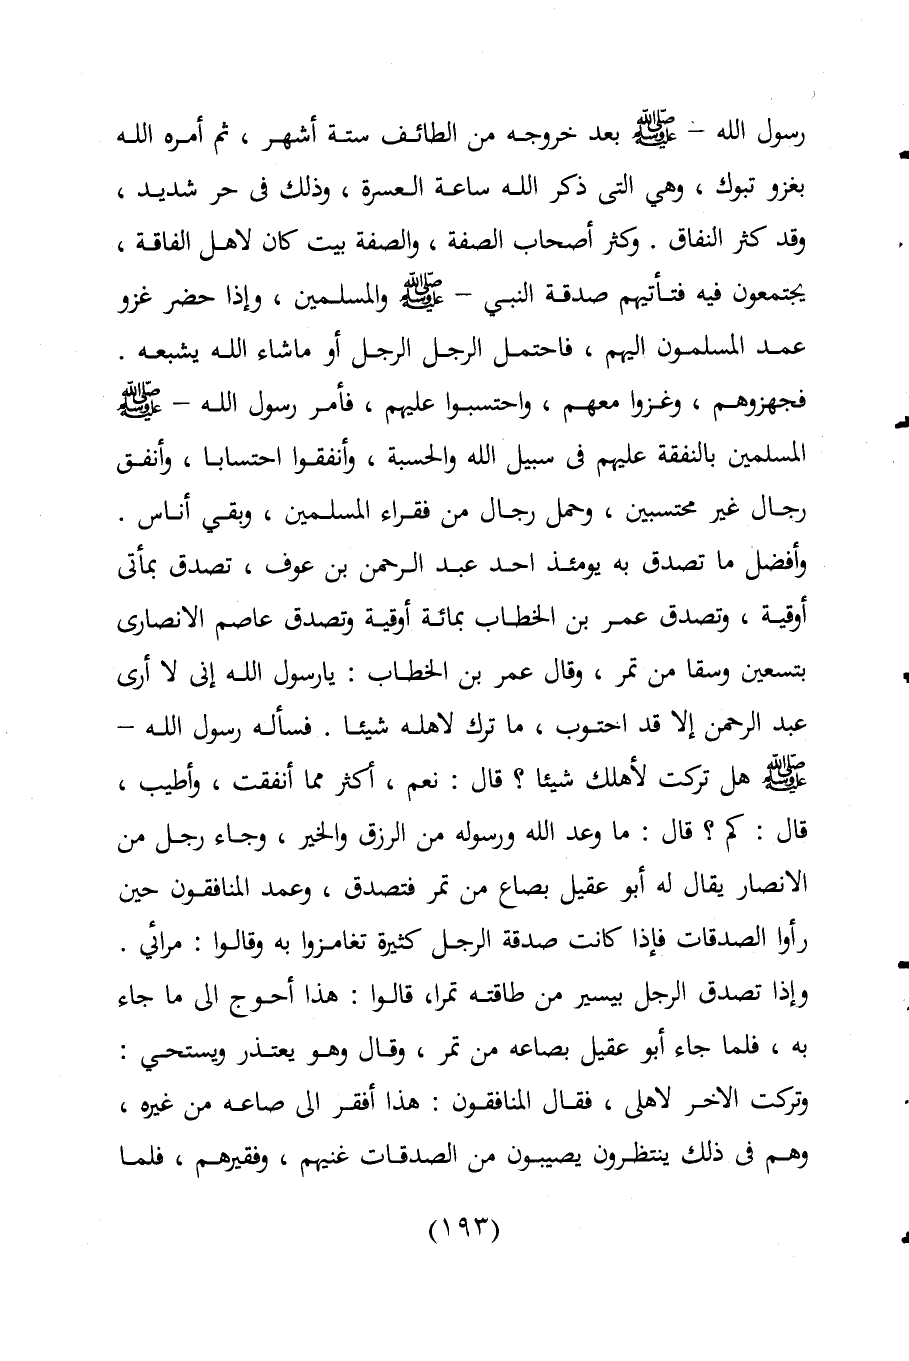 رسول الله - ﷺ بعد خروجه من الطائف ستة أشهر ، ثم أمره الله
بغزو تبوك ، وهي التى ذكر الله ساعة العسرة ، وذلك فى حر شديد ،
وقد كثر النفاق . وكثر أصحاب الصفة ، والصفة بيت كان لاهل الفاقة ،
يجتمعون فيه فتأتيهم صدقة النبي - ﷺ والمسلمين ، وإذا حضر غزو
عمد المسلمون اليهم ، فاحتمل الرجل الرجل أو ماشاء الله يشبعه .
فجهزوهم ، وغزوا معهم ، واحتسبوا عليهم ، فأمر رسول الله - ﷺ
المسلمين بالنفقة عليهم فى سبيل الله والحسبة ، وأنفقوا احتسابا ، وأنفق
رجال غير محتسبين ، وحمل رجال من فقراء المسلمين ، وبقي أناس .
وأفضل ما تصدق به يومئذ احد عبد الرحمن بن عوف ، تصدق بمأتى
أوقية ، وتصدق عمر بن الخطاب بمائة أوقية وتصدق عاصم الانصارى
بتسعين وسقا من تمر ، وقال عمر بن الخطاب : يارسول الله إنى لا أرى
عبد الرحمن إلا قد احتوب ، ما ترك لاهله شيئا . فسأله رسول الله -
ﷺ هل تركت لأهلك شيئا ؟ قال : نعم ، أكثر مما أنفقت ، وأطيب ،
قال : كم ؟ قال : ما وعد الله ورسوله من الرزق والخير ، وجاء رجل من
الانصار يقال له أبو عقيل بصاع من تمر فتصدق ، وعمد المنافقون حين
رأوا الصدقات فإذا كانت صدقة الرجل كثيرة تغامزوا به وقالوا : مرائي .
وإذا تصدق الرجل بيسير من طاقته تمرا، قالوا : هذا أحوج الى ما جاء
به ، فلما جاء أبو عقيل بصاعه من تمر ، وقال وهو يعتذر ويستحي :
وتركت الاخر لاهلى ، فقال المنافقون : هذا أفقر الى صاعه من غيره ،
وهم فى ذلك ينتظرون يصيبون من الصدقات غنيهم ، وفقيرهم ، فلما
(١٩٣)